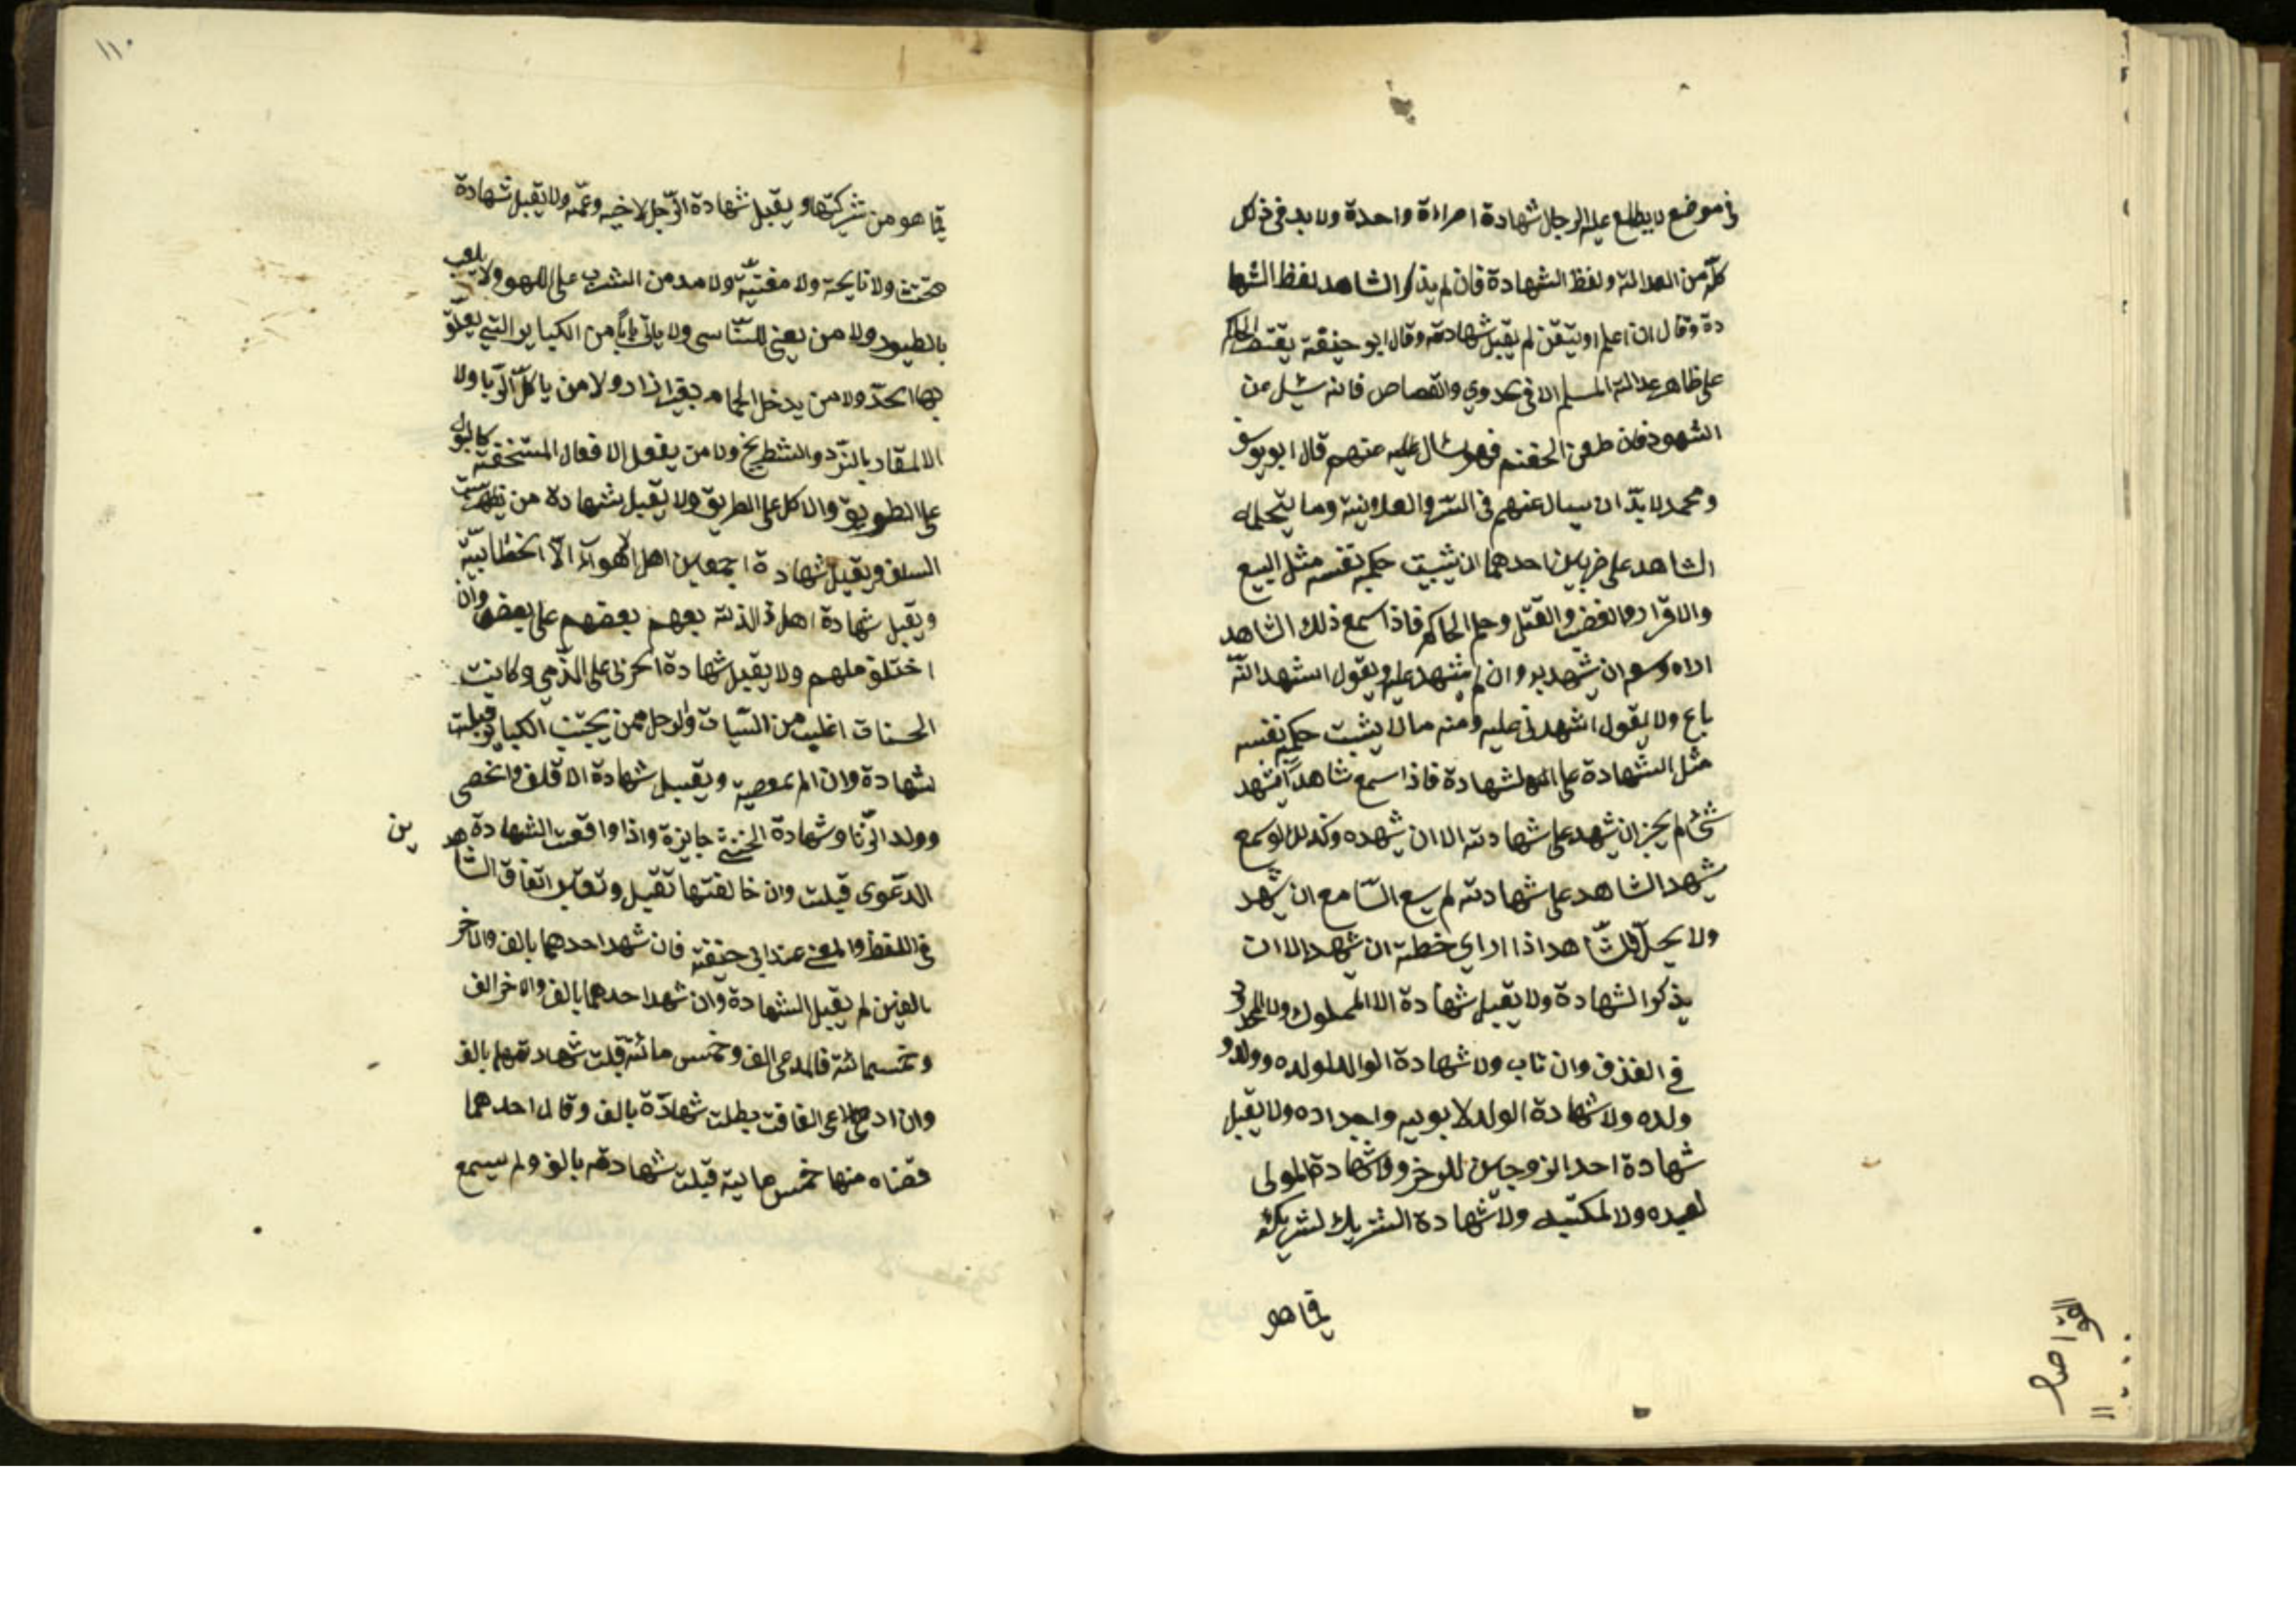 في موضع لا يطلع عليه الرجال شهادة امراءة واحدة ولا بد في ذلك
كله من العدالة ولفظ الشهادة فان لم يذكر الشاهد لفظ الشها
دة وقال ان اعلم او يتقن لم يقبل شهادته وقال ابو حنيفة يقتصر الحاكم
على ظاهر عدالة المسلم الا في الحدود والقصاص فانه يسئل عن
الشهود فان طعن الخصم فهو سال عليه عنهم قال ابو يوسف
ومحمد لا بدّ ان يسال عنهم في السّر والعلانية وما يتحمله
الشاهد على ضربين احدهما ان يثبت حكمه بنفسه مثل البيع
والاقرار والغصب والقتل وحكم الحاكم فاذا سمع ذلك الشاهد
اراه وسعه ان يشهد به وان لم يشهد عليه ويقول اشهد انّه
باع ولا يقول اشهدني عليه ومنه ما لا يثبت حكمه بنفسه
مثل الشهادة على الشهادة فاذا سمع شاهداً يشهد
شئ لم يجز ان يشهد على شهادته الا ان يشهده وكذلك لو سمع
يشهد الشاهد على شهادته لم يسع السّامع ان يشهد
ولا يحلّ للشّاهد اذا اراي خطه ان يشهد الا ان
يذكر الشهادة ولا يقبل شهادة الا المملوك ولا المحدود
في القذف وان تاب ولا شهادة الوالد لولده وولد
ولده ولا شهادة الولد لابويه واجداده ولا يقبل
شهادة احد الزوجين للاخر ولا شهادة المولى
لعبده ولا لمكتبه ولا شهادة الشريك لشريكه
فيما هو
١١٠
فيما هو من شركتها ويقبل شهادة الرّجل لاخيه وعمّه ولا يقبل شهادة
مخنث ولا نايحة ولا مغنيّة ولا مدمن الشرب على اللهو ولا يلعب
بالطيور ولا من يغني للنّاس ولا ياتي باباً من الكباير التي يعلّق
بها الحدّ ولا من يدخل الحمام بغير ازار ولا من ياكل الرّبا ولا
الا المقاد بالنّرد والشطرنج ولا من يفعل الافعال المستخفة كالبول
على الطريق والاكل على الطريق ولا يقبل شهادة من يظهر سبّ
السلف ويقبل شهادة اجمعين اهل الاهواء الّا الخطّابيّة
ويقبل شهادة اهل الذمة بعهم بعضهم على بعض وان
اختلف مللهم ولا يقبل شهادة الحربي على الذّمي وكانت
الحسنات اغلب من السّيات والرجل ممن يجتنب الكباير قبلت
شهادة وان الم بمعصية ويقبل شهادة الاقلف والخصى
وولد الزّنا وشهادة الخنثى جايزة واذا وافقت الشهادة
الدّعوى قبلت وان خالفتها تقبل وتعتبر اتفاق الشاهد
ين
في اللفظ والمعنى عند ابي حنيفة فان شهد احدهما بالف والاخر
بالفين لم يقبل الشهادة وان شهد احدهما بالف والاخر الف
وخمسمائة فالمدعى الف وخمس مائة قبلت شهادتهما بالف
بطلت شهادة بالف وقال احدهما
قضاه منها خمس ماية قبلت شهادته بالف ولم يسمع